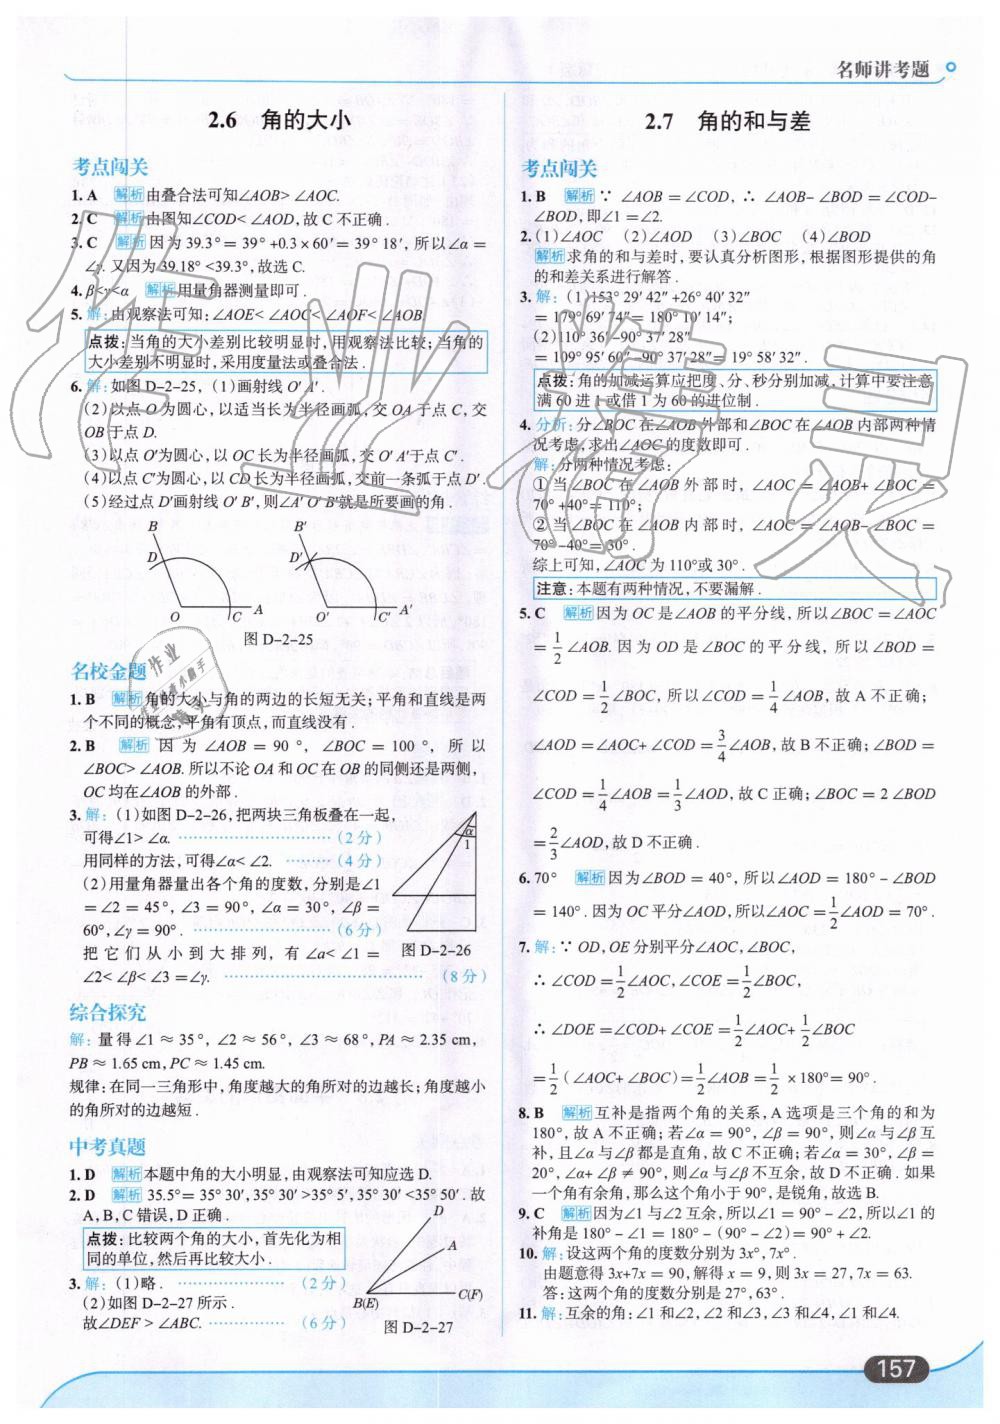 名师讲考题
2.6 角的大小
考点闯关
1. A 解析 由叠合法可知∠AOB> ∠AOC.
2. C 解析 由图知∠COD< ∠AOD,故 C 不正确.
3. C 解析 因为 39.3°= 39° +0.3 × 60′= 39° 18′, 所以∠α =
∠γ. 又因为 39.18° <39.3°,故选 C.
4. β<γ<α 解析 用量角器测量即可.
5. 解:由观察法可知:∠AOE< ∠AOC< ∠AOF< ∠AOB.
点拨:当角的大小差别比较明显时,用观察法比较;当角的
大小差别不明显时,采用度量法或叠合法.
6. 解:如图 D-2-25, (1)画射线 O′ A′.
(2)以点 O 为圆心,以适当长为半径画弧,交 OA 于点 C,交
OB 于点 D.
(3)以点 O′为圆心,以 OC 长为半径画弧,交 O′ A′于点 C′.
(4)以点 C′为圆心,以 CD 长为半径画弧,交前一条弧于点 D′.
(5)经过点 D′画射线 O′ B′,则∠A′ O′ B′就是所要画的角.
B B′
D D′
O C A O′ C′ A′
图 D-2-25
名校金题
1. B 解析 角的大小与角的两边的长短无关;平角和直线是两
个不同的概念,平角有顶点,而直线没有.
2. B 解析 因为 ∠AOB = 90°, ∠BOC = 100°, 所以
∠BOC> ∠AOB. 所以不论 OA 和 OC 在 OB 的同侧还是两侧,
OC 均在∠AOB 的外部.
3. 解: (1)如图 D-2-26,把两块三角板叠在一起,
可得∠1> ∠α. (2 分)
用同样的方法,可得∠α< ∠2. (4 分)
(2)用量角器量出各个角的度数,分别是∠1
= ∠2 = 45°, ∠3 = 90°, ∠α = 30°, ∠β =
60°,∠γ = 90°. (6 分)
把它们从小到大排列, 有 ∠α< ∠1 =
∠2< ∠β< ∠3 = ∠γ. (8 分)
α
1
图 D-2-26
综合探究
解:量得∠1 ≈ 35°, ∠2 ≈ 56°, ∠3 ≈ 68°, PA ≈ 2.35 cm,
PB ≈ 1.65 cm, PC ≈ 1.45 cm.
规律:在同一三角形中,角度越大的角所对的边越长;角度越小
的角所对的边越短.
中考真题
1. D 解析 本题中角的大小明显,由观察法可知应选 D.
2. D 解析 35.5°= 35° 30′,35° 30′ >35° 5′,35° 30′ <35° 50′. 故
A,B,C 错误,D 正确.
点拨:比较两个角的大小,首先化为相
同的单位,然后再比较大小.
3. 解: (1)略. (2 分)
(2)如图 D-2-27 所示.
故∠DEF > ∠ABC. (6 分)
D
A
B(E) C(F)
图 D-2-27
2.7 角的和与差
考点闯关
1. B 解析 ∵ ∠AOB = ∠COD, ∴ ∠AOB- ∠BOD = ∠COD-
∠BOD,即∠1 = ∠2.
2. (1)∠AOC (2)∠AOD (3)∠BOC (4)∠BOD
解析 求角的和与差时,要认真分析图形,根据图形提供的角
的和差关系进行解答.
3. 解: (1)153° 29′ 42″ +26° 40′ 32″
= 179° 69′ 74″= 180° 10′ 14″;
(2)110° 36′ -90° 37′ 28″
= 109° 95′ 60″ -90° 37′ 28″= 19° 58′ 32″.
点拨:角的加减运算应把度、分、秒分别加减,计算中要注意
满 60 进 1 或借 1 为 60 的进位制.
4. 分析:分∠BOC 在∠AOB 外部和∠BOC 在∠AOB 内部两种情
况考虑,求出∠AOC 的度数即可.
解:分两种情况考虑:
① 当 ∠BOC 在 ∠AOB 外部时, ∠AOC = ∠AOB+ ∠BOC =
70° +40° = 110°;
② 当 ∠BOC 在 ∠AOB 内部时, ∠AOC = ∠AOB- ∠BOC =
70° -40° = 30°.
综上可知,∠AOC 为 110°或 30°.
注意:本题有两种情况,不要漏解.
5. C 解析 因为 OC 是∠AOB 的平分线,所以∠BOC = ∠AOC
= 1/2 ∠AOB. 因为 OD 是 ∠BOC 的平分线, 所以 ∠BOD =
∠COD = 1/2 ∠BOC, 所以 ∠COD = 1/4 ∠AOB, 故 A 不正确;
∠AOD = ∠AOC+ ∠COD = 3/4 ∠AOB, 故 B 不正确; ∠BOD =
∠COD = 1/4 ∠AOB = 1/3 ∠AOD, 故 C 正确; ∠BOC = 2 ∠BOD
= 2/3 ∠AOD,故 D 不正确.
6. 70° 解析 因为∠BOD = 40°,所以∠AOD = 180° - ∠BOD
= 140°. 因为 OC 平分∠AOD,所以∠AOC = 1/2 ∠AOD = 70°.
7. 解: ∵ OD,OE 分别平分∠AOC,∠BOC,
∴ ∠COD = 1/2 ∠AOC,∠COE = 1/2 ∠BOC,
∴ ∠DOE = ∠COD+ ∠COE = 1/2 ∠AOC+ 1/2 ∠BOC
= 1/2 ( ∠AOC+ ∠BOC) = 1/2 ∠AOB = 1/2 × 180°= 90°.
8. B 解析 互补是指两个角的关系,A 选项是三个角的和为
180°,故 A 不正确;若∠α = 90°, ∠β = 90°, 则∠α与∠β互
补,且∠α与∠β都是直角,故 C 不正确;若∠α = 30°, ∠β =
20°,∠α+ ∠β ≠ 90°, 则∠α 与∠β 不互余,故 D 不正确. 如果
一个角有余角,那么这个角小于 90°,是锐角,故选 B.
9. C 解析 因为∠1 与∠2 互余,所以∠1 = 90° - ∠2,所以∠1 的
补角是 180° - ∠1 = 180° - (90° - ∠2) = 90° + ∠2.
10. 解:设这两个角的度数分别为 3x°,7x°.
由题意得 3x+7x = 90,解得 x = 9,则 3x = 27,7x = 63.
答:这两个角的度数分别是 27°,63°.
11. 解:互余的角: ∠1 和∠2, ∠2 和∠3, ∠3 和∠4, ∠1 和∠4.
157
作业精灵
作业